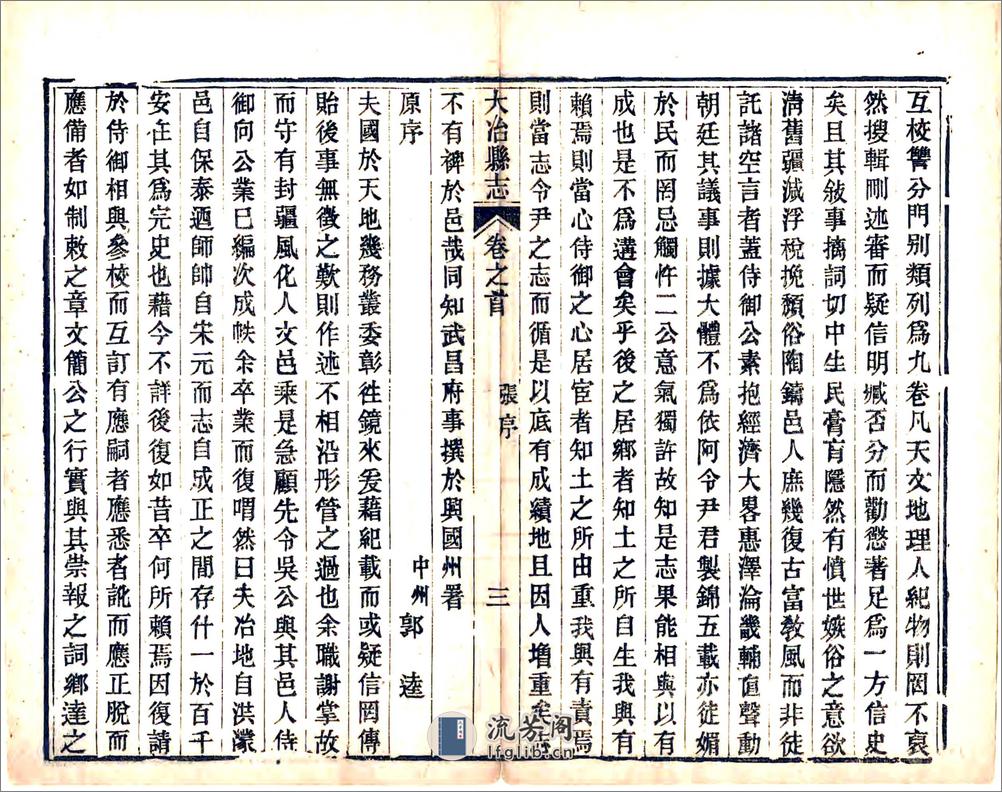 互校讐分門別類列爲九卷凡天文地理人紀物則罔不裒
然搜輯刪述審而疑信明臧否分而勸懲著足爲一方信史
矣且其敍事摛詞切中生民膏肓隱然有憤世嫉俗之意欲
淸舊疆減浮稅挽頹俗陶鑄邑人庶幾復古富敎風而非徒
託諸空言者蓋侍御公素抱經濟大畧惠澤淪畿輔直聲動
朝廷其議事則據大體不爲依阿令尹君製錦五載亦徒媚
於民而罔忌觸忤二公意氣獨許故知是志果能相與以有
成也是不爲遘會矣乎後之居鄉者知土之所自生我與有
賴焉則當心侍御之心居宦者知土之所由重我與有責焉
則當志令尹之志而循是以底有成績地且因人增重矣
大冶縣志 卷之首 張序 三
不有裨於邑哉同知武昌府事撰於興國州署
原序 中州 郭逵
夫國於天地幾務叢委彰徃鏡來爰藉紀載而或疑信罔傳
貽後事無徵之歎則作述不相沿彤管之過也余職謝掌故
而守有封疆風化人文邑乘是急顧先令吳公與其邑人侍
御向公業已編次成帙余卒業而復喟然曰夫冶地自洪濛
邑自保泰迺師帥自宋元而志自成正之間存什一於百千
安在其爲完史也藉今不詳後復如昔卒何所賴焉因復請
於侍御相與參校而互訂有應嗣者應悉者訛而應正脫而
應備者如制敕之章文簡公之行實與其崇報之詞鄉達之
流芳阁
lfglib.cn